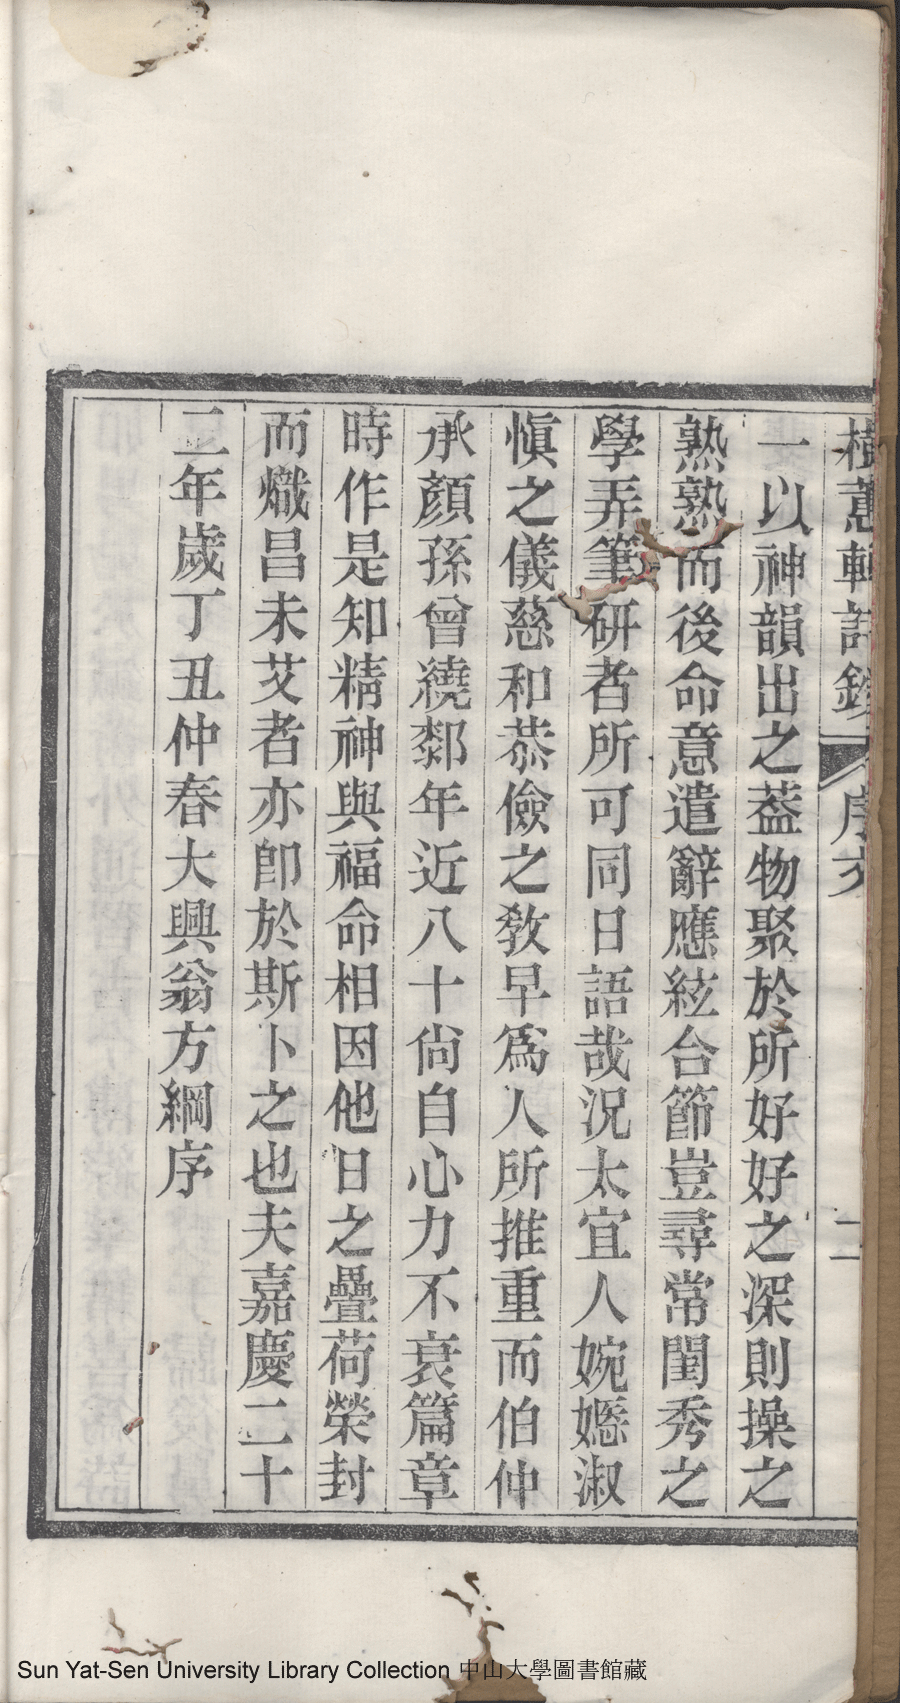 樹蕙軒詩鈔 序文 二
一以神韻出之葢物聚於所好好之深則操之
熟熟而後命意遣辭應絃合節豈尋常閨秀之
學弄筆研者所可同日語哉況太宜人婉嫕淑
愼之儀慈和恭儉之敎早爲人所推重而伯仲
承顏孫曾繞郯年近八十尙自心力不衰篇章
時作是知精神與福命相因他日之疊荷榮封
而熾昌未艾者亦卽於斯卜之也夫嘉慶二十
二年歲丁丑仲春大興翁方綱序
Sun Yat-Sen University Library Collection 中山大學圖書館藏